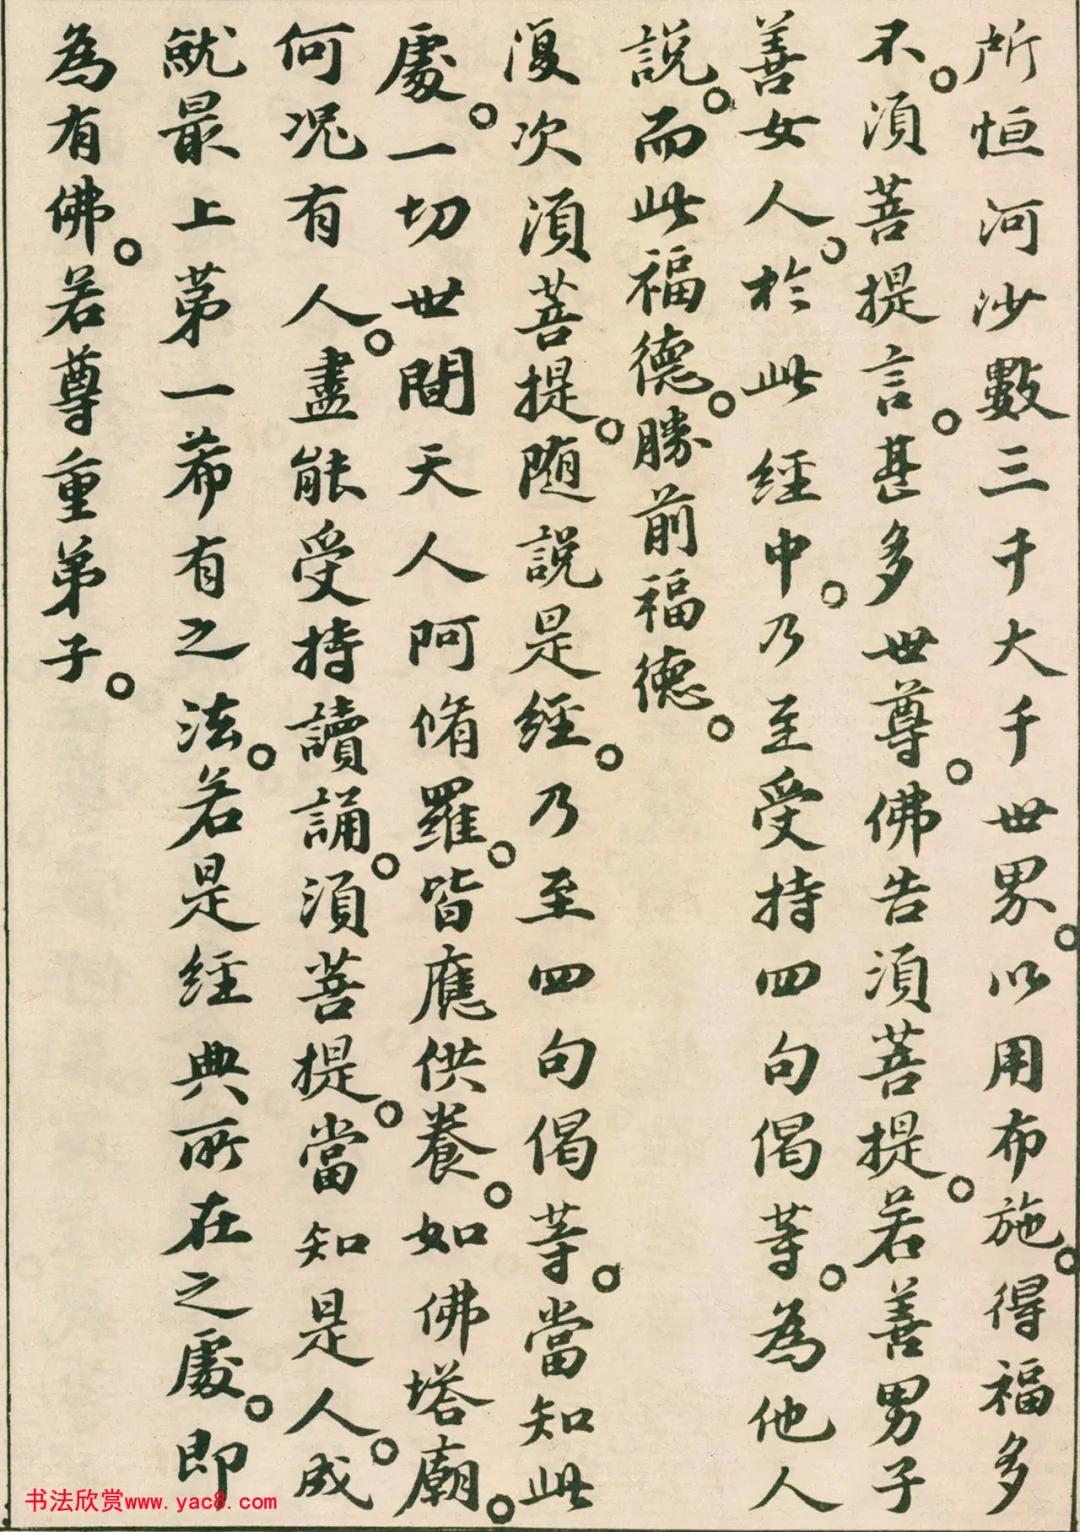 所恒河沙數三千大千世界。以用布施。得福多
不。須菩提言。甚多世尊。佛告須菩提。若善男子
善女人。於此經中。乃至受持四句偈等。為他人
說。而此福德。勝前福德。
復次須菩提。随說是經。乃至四句偈等。當知此
處。一切世間天人阿脩羅。皆應供養。如佛塔廟。
何況有人。盡能受持讀誦。須菩提。當知是人。成
就最上第一希有之法。若是經典所在之處。即
為有佛。若尊重弟子。
书法欣赏www.yac8.com